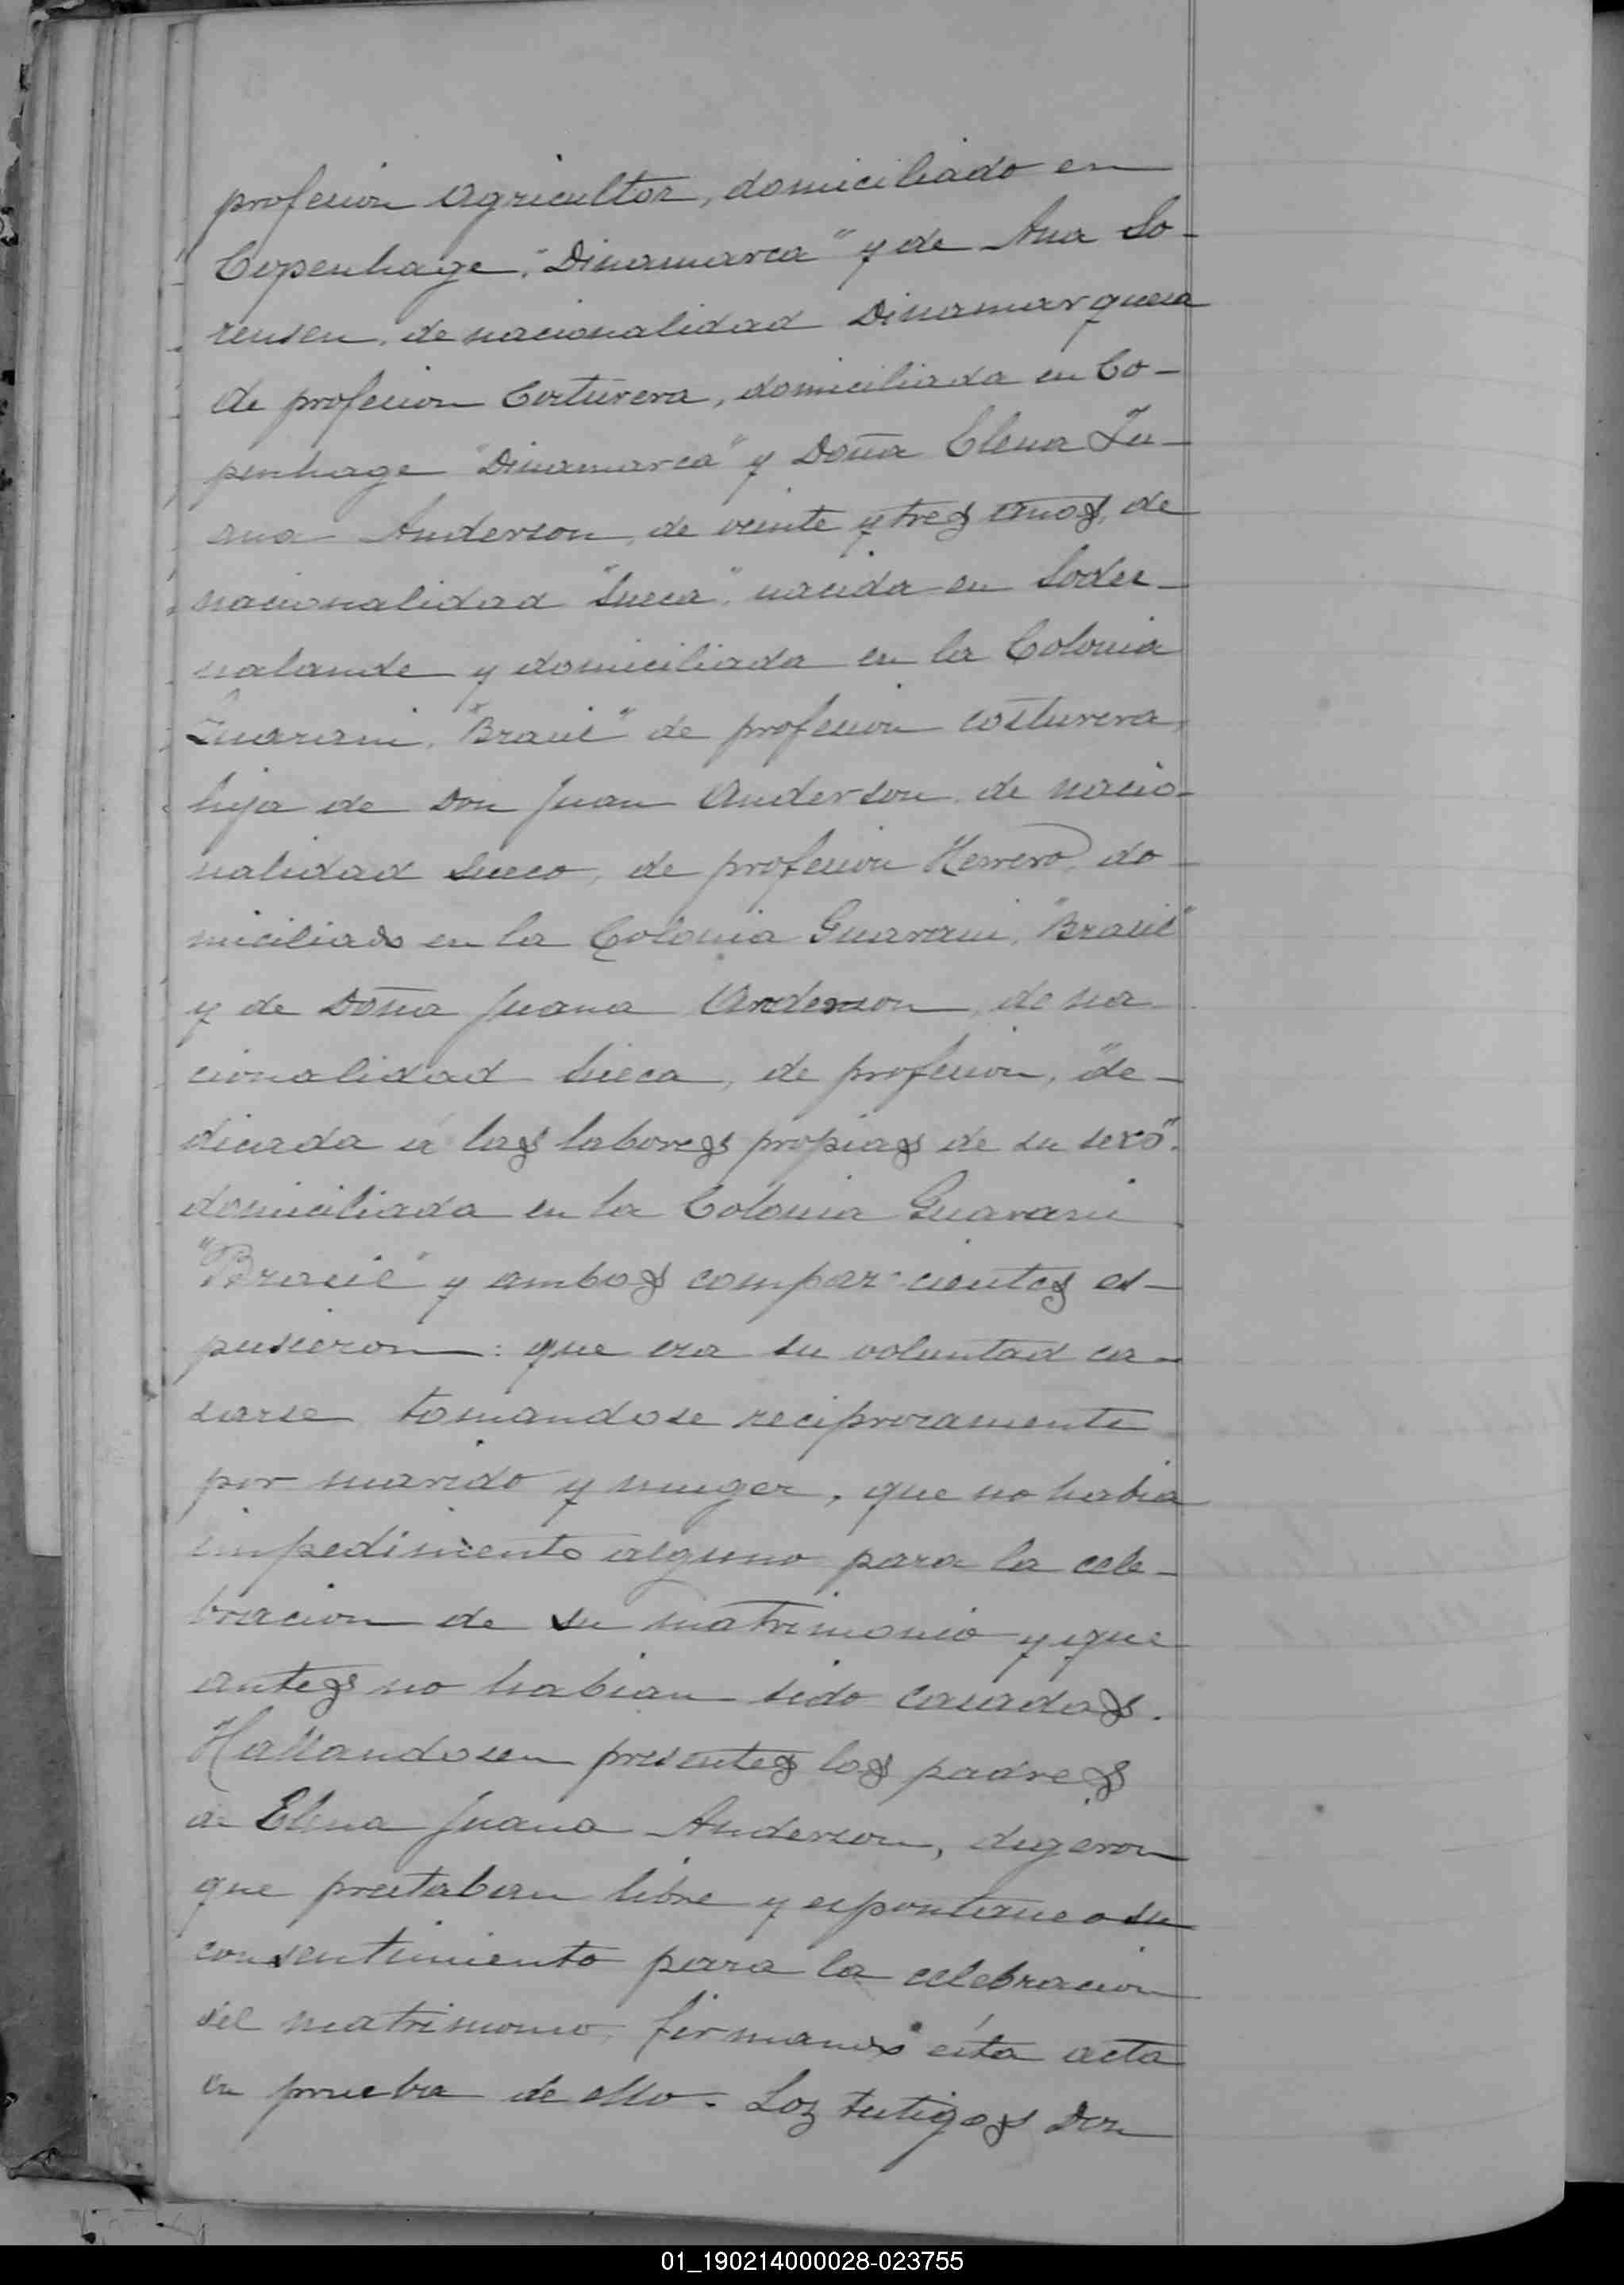 profesion Agricultor, domiciliado en
Copenhage, "Dinamarca" y de Ana So-
rensen, de nacionalidad Dinamarquesa
de profesion Costurera, domiciliada en Co-
penhage "Dinamarca" y Doña Elena Ju-
ana Anderson, de veinte y tres años, de
nacionalidad "Sueca", nacida en Soder-
nalande y domiciliada en la Colonia
Guarani, "Brasil" de profesion costurera,
hija de Don Juan Anderson, de nacio-
nalidad Sueco, de profesion Herrero, do-
miciliado en la Colonia Guarani, "Brasil"
y de Doña Juana Anderson, de na
cionalidad Sueca, de profesion, "de-
dicada á las labores propias de su sexo".
domiciliada en la Colonia Guarani
"Brasil" y ambos comparecientes es-
pusieron: que era su voluntad ca-
sarse tomandose reciprocamente
por marido y muger, que no habia
impedimento alguno para la cele-
bracion de su matrimonio y que
antes no habian sido casados.
Hallandosen presentes los padres
de Elena Juana Anderson, digeron
que prestaban libre y espontaneo su
consentimiento para la celebracion
del matrimonio, firmando ésta acta
en prueba de ello. Los testigos Don
01_190214000028-023755